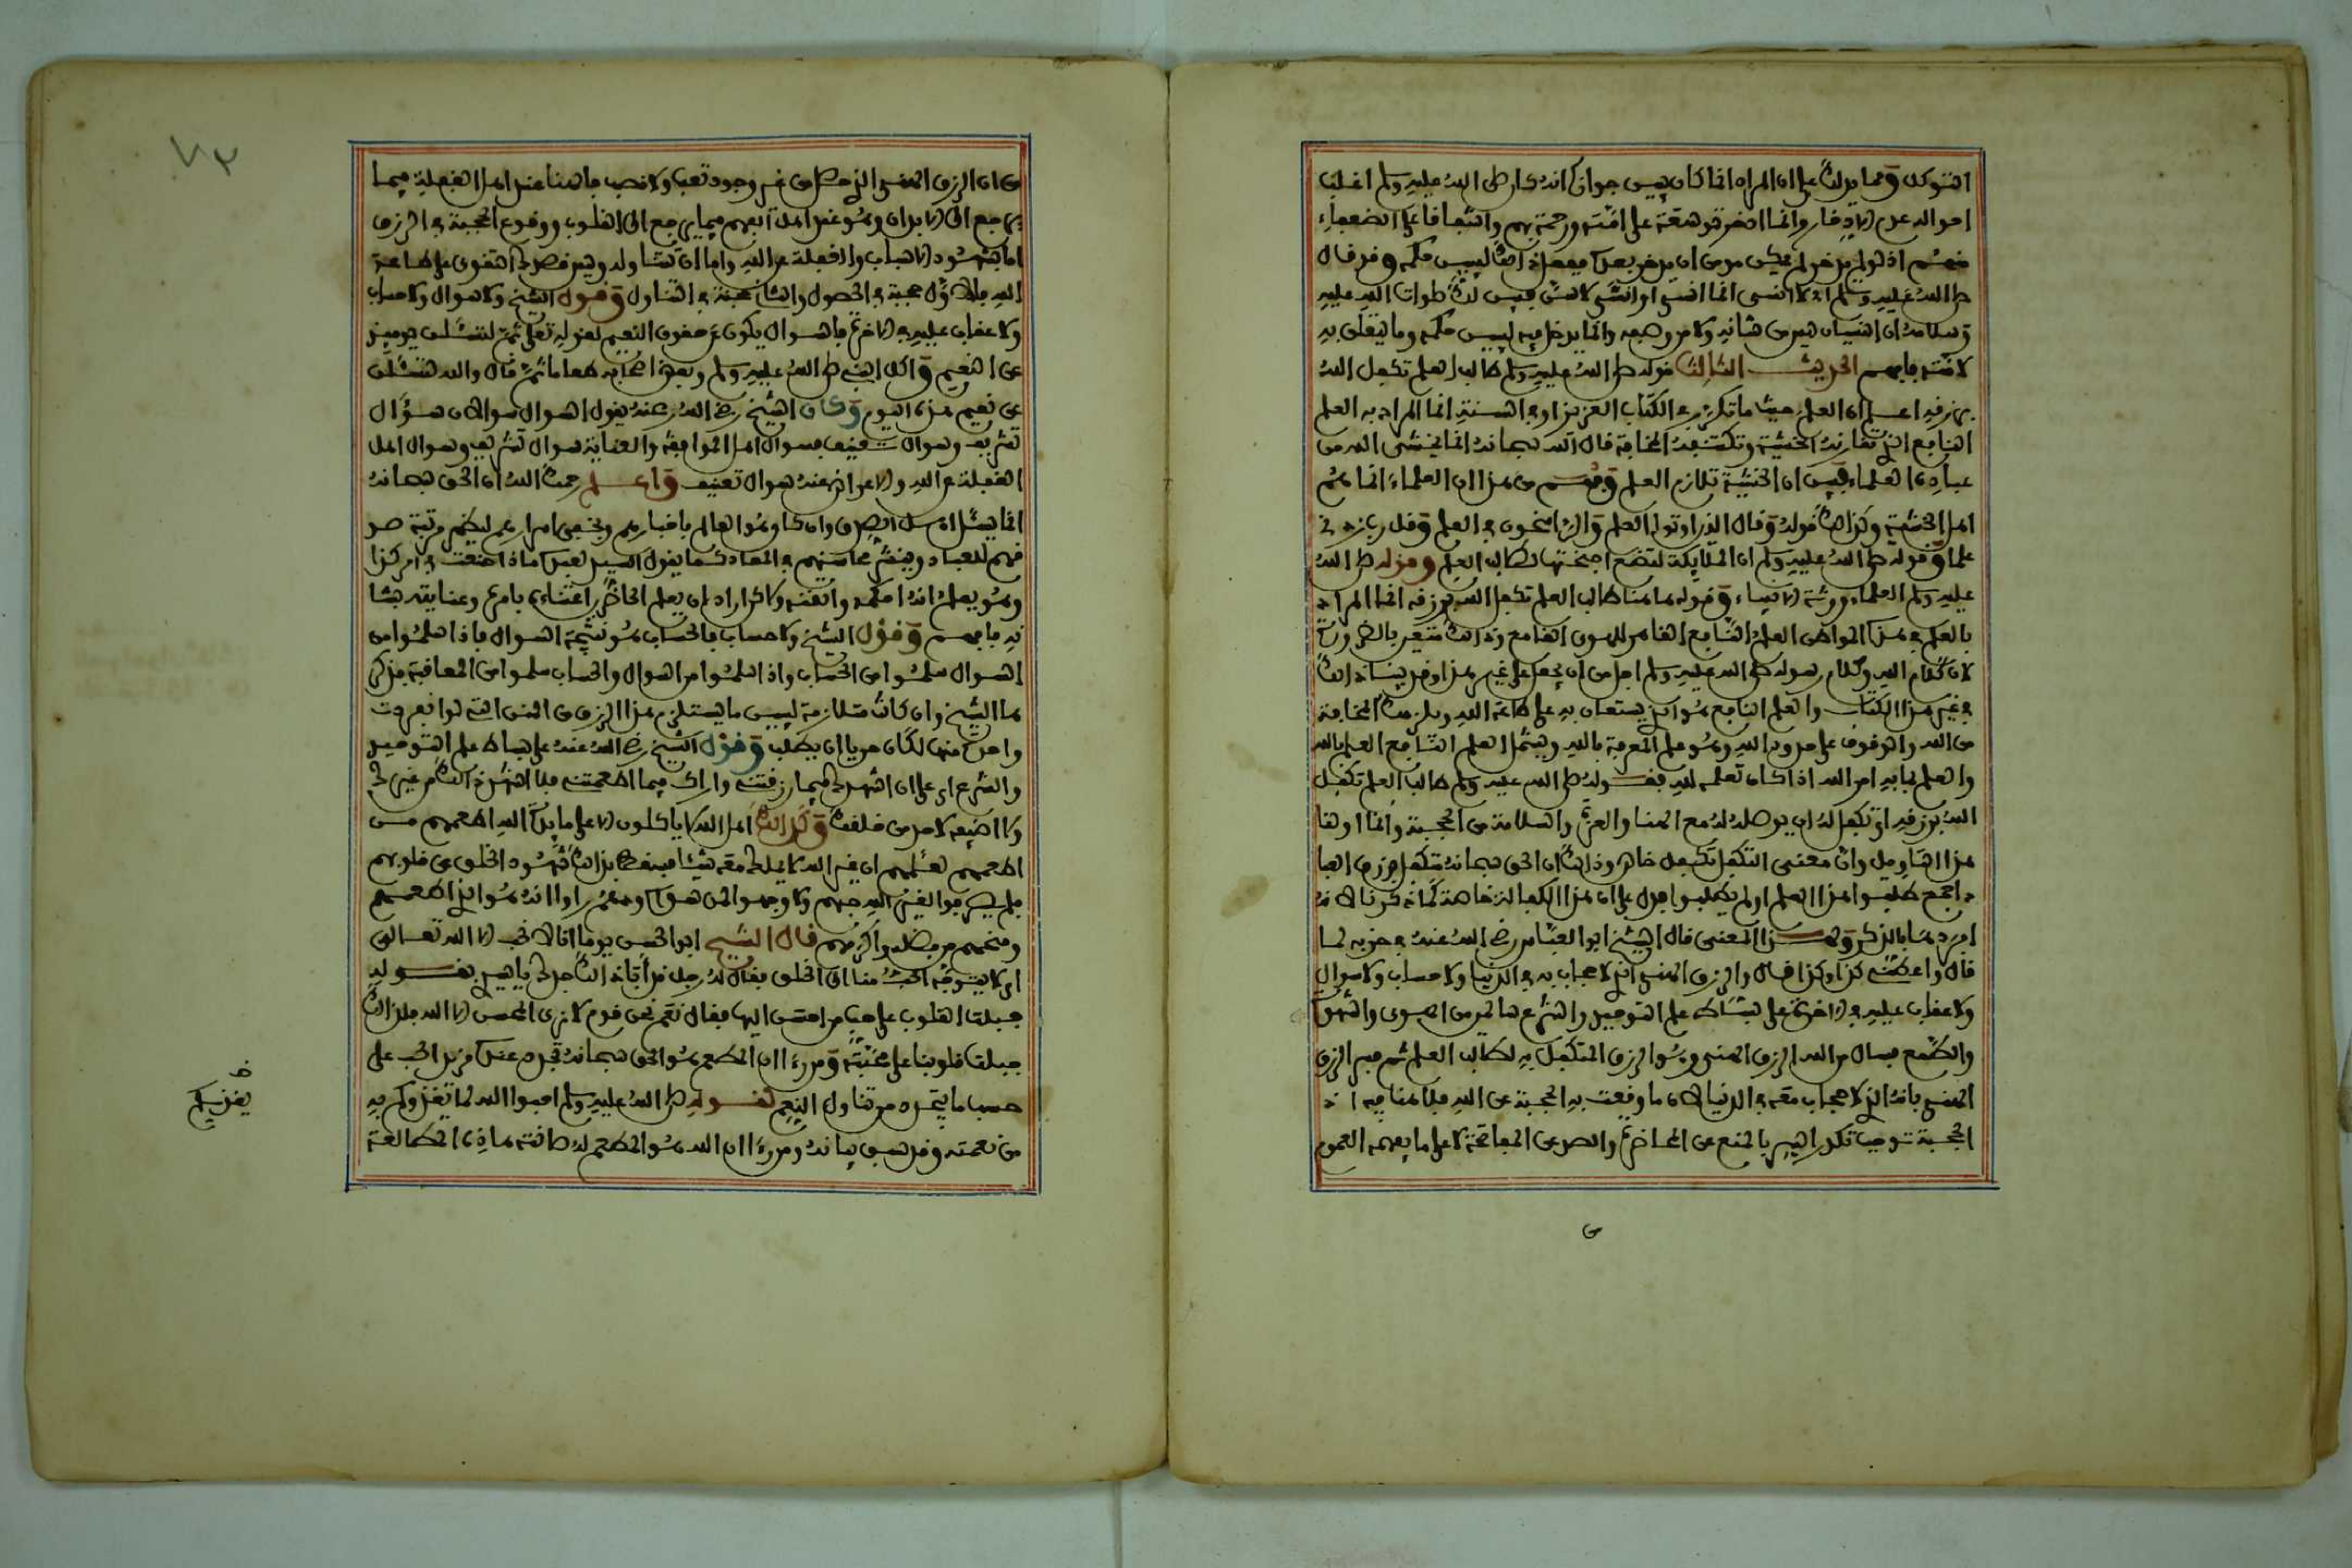 التوكل ومما يدلك على ان المراد انما كان ليبين جوازا انه كان صلى الله عليه وسلم اغلب
احواله عدم الادخار وانما ادخر توسعة على امته ورحمة بهم واشفاقا على الضعفاء
منهم اذ لو لم يدخر لم يمكن مومن ان يدخر بعده ففعل ذلك ليبين حكمه وقد قال
صلى الله عليه وسلم اني لا انسى انما انسى او انسى لاسن فبين لك صلوات الله عليه
وسلامه ان النسيان ليس من شانه ولا من وصفه وانما يدخل فيه ليبين حكمه وما يتعلق به
لامته فافهم الحديث الثالث قوله صلى الله عليه وسلم طالب العلم تكفل الله
برزقه اعلم ان العلم حيث ما تكرر في الكتاب العزيز او في السنة انما المراد به العلم
النافع الذي تقارنه الخشية وتكتنفه المخافة قال الله سبحانه انما يخشى الله من
عباده العلماء فبين ان الخشية تلازم العلم وفهم من هذا ان العلماء انما هم
اهل الخشية وكذلك قوله وقال الذين اوتوا العلم والراسخون في العلم وقل رب زدني
علما وقوله صلى الله عليه وسلم ان الملائكة لتضع اجنحتها لطالب العلم وقوله صلى الله
عليه وسلم العلماء ورثة الانبياء وقوله هاهنا طالب العلم تكفل الله برزقه انما المراد
بالعلم في هذه المواطن العلم النافع القاهر للهوى القامع وذلك متعين بالضرورة
لان كلام الله وكلام رسوله صلى الله عليه وسلم اجل من ان يحمل على غير هذا وقد بينا ذلك
في غير هذا الكتاب والعلم النافع هو الذي يستعان به على طاعة الله ويلزمك المخافة
من الله والوقوف على حدود الله وهو علم المعرفة بالله ويشمل العلم النافع العلم بالله
والعلم بما به امر الله اذا كان تعلمه لله فقوله صلى الله عليه وسلم طالب العلم تكفل
الله برزقه اي تكفل له ان يوصله له مع الهنا والعزة والسلامة من الحجبة وانما اولنا
هذا التاويل وان معنى التكفل تكفل خاص وذلك ان الحق سبحانه متكفل برزق العبا
د اجمع طلبوا هذا العلم او لم يطلبوا فدل على ان هذا الكفالة خاصة كما ذكرنا لانه
افردها بالذكر وهذا المعنى قال الشيخ ابو العباس رضي الله عنه في حزبه لما
قال واعطنا كذا وكذا قال والرزق الهني الذي لا حجاب به في الدنيا ولا حساب ولا سوال
ولا عقاب عليه في الاخرة على بساط علم التوحيد والشرع سالمين من الهوى والشهوة
والطمع فسال من الله الرزق الهني وهو الرزق المتكفل به لطالب العلم ثم فسر الرزق
الهني بانه الذي لا حجاب معه في الدنيا لان ما وقعت به الحجبة عن الله فلا هنا فيه اذ
الحجبة توجب تكدير الهني بالمنع عن المحاضرة والصد عن المفاتحة لا على ما يفهمه العموم
من ان الرزق الهني الذي حصل من غير وجود تعب ولا نصب فالهنا عند اهل الغفلة فيما
يرجع الى الابدان وهو عند اهل الفهم فيما يرجع الى القلوب ووقوع الحجبة في الرزق
اما بشهود الاسباب والغفلة عن الله واما ان تتناوله وليس قصدك التقوى على طاعة
الله فالاول حجبة في الحصول والثاني حجبة في التناول وقول الشيخ ولا سوال ولا حساب
ولا عقاب عليه في الاخرة فالسوال يكون عن حقوق النعيم لقوله تعلى ثم لتسئلن يوميذ
عن النعيم واكل النبي صلى الله عليه وسلم وبعض اصحابه طعاما ثم قال والله لتسئلن
عن نعيم هذا اليوم وكان الشيخ رضي الله عنه يقول السوال سوالان سؤال
تشريف وسوال تعنيف فسوال اهل الموافقة والعناية سوال تشريف وسوال اهل
الغفلة عن الله والاعراض عنه سوال تعنيف واعلم رحمك الله ان الحق سبحانه
انما يسئل اهل الصدق وان كان هو العالم باخبارهم وبخفي اسرارهم ليظهر مرتبة صد
قهم للعباد وينشر محاسنهم في المعاد كما يقول السيد لعبده ماذا صنعت في امر كذا
وهو يعلم انه احكمه واتقنه ولاكن اراد ان يعلم الحاضرين اعتناءه بامره وعنايته بشا
نه فافهم وقول الشيخ ولا حساب فالحساب هو نتيجة السوال فاذا سلموا من
السوال سلموا من الحساب واذا سلموا من السوال والحساب سلموا من المعاقبة فذكر
ها الشيخ وان كانت متلازمة ليبين ما يستلزم هذا الرزق من المنن التي لو انفردت
واحدة منها لكان حريا ان يطلب وقول الشيخ رضي الله عنه على بساط علم التوحيد
والشرع اي على ان اشهدك فيما رزقتني واراك فيما اطعمتني فلا اشهد ذلك من غيرك
ولا اضيفه لاحد من خلقك وكذلك اهل الله لا ياكلون الا على مايدة الله اطعمهم من
اطعمهم لعلمهم ان غير الله لا يملك معه شيئا فسقط بذلك شهود الخلق من قلوبهم
فلم يصرفوا لغير الله حبهم ولا وجهوا لمن سواه ودهم راوا انه هو الذي اطعمهم
ومنحهم من فضله واكرمهم قال الشيخ ابو الحسن يوما انا لا نحب الا الله تعالى
اي لا يتوجه الحب منا الى الخلق فقال له رجل قد ابى ذلك جدك يا سيدي بقوله
جبلت القلوب على حب من احسن اليها فقال نعم نحن قوم لا نرى المحسن الا الله فلذلك
جبلت قلوبنا على محبته ومن رءا ان المطعم هو الحق سبحانه تجدد عنده مزيد الحب على
حسب ما يتجدد من تناول النعم لقوله صلى الله عليه وسلم احبوا الله لما يغذوكم به
من نعمته وقد سبق بيانه ومن رءا ان الله هو المطعم له صانته هاذه المطالعة
٧٣
خ
يغذيكم